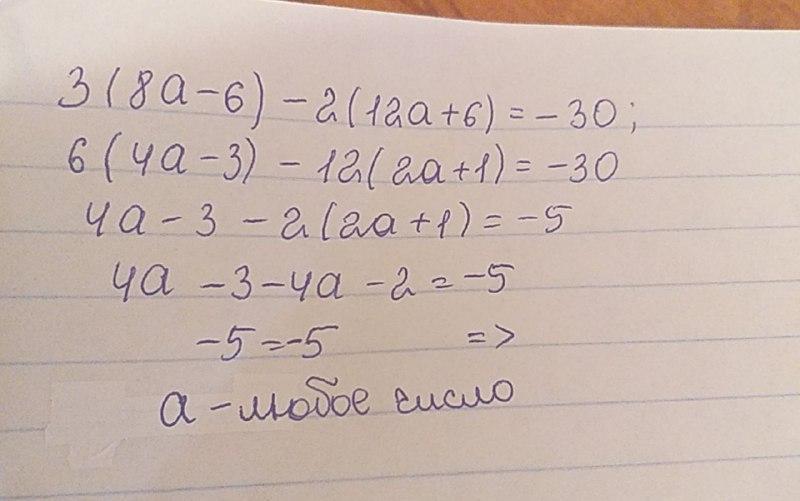 3(8a-6)-2(12a+6)=-30;
6(4a-3)-12(2a+1)=-30
4a-3-2(2a+1)=-5
4a-3-4a-2=-5
-5=-5 =>
a-любое число